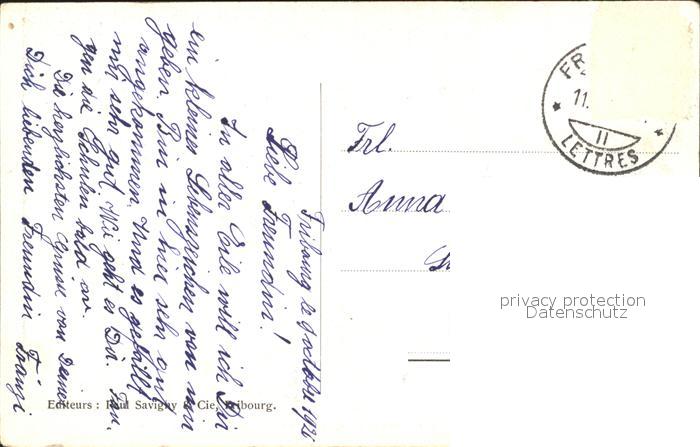 Fribourg le 9 octobre 1921
Liebe Freundin!
In aller Eile will ich Dir
ein kleines Lebenszeichen von mir
geben. Bin in hier sehr gut
angekommen. Und es gefällt
mir sehr gut. Wie geht es Dir.
gen die Schulen bald an.
Die herzlichsten Grüsse von Deiner
Dich liebenden Freundin Fränzi
Frl.
Anna
FR
11.
II
LETTRES
privacy protection
Datenschutz
Editeurs : Paul Savigny & Cie, Fribourg.